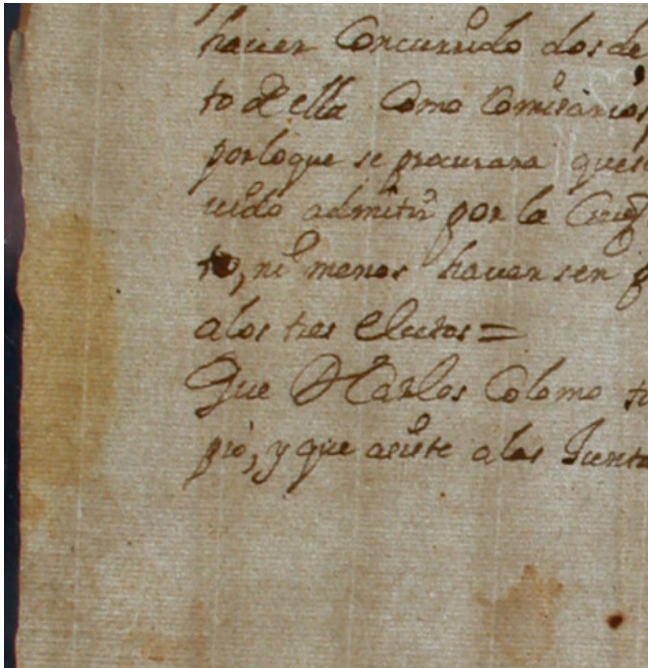 haver Concurrido dos de
to de ella Como Comisarios,
por lo que se procurara que
uido admitir por la
to, ni menos haver ser
a los tres electos =
Que Dn Carlos Colomo
pio, y que asiste a las Junta